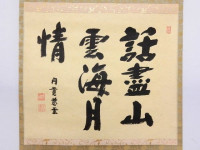 話盡山
雲海月
情